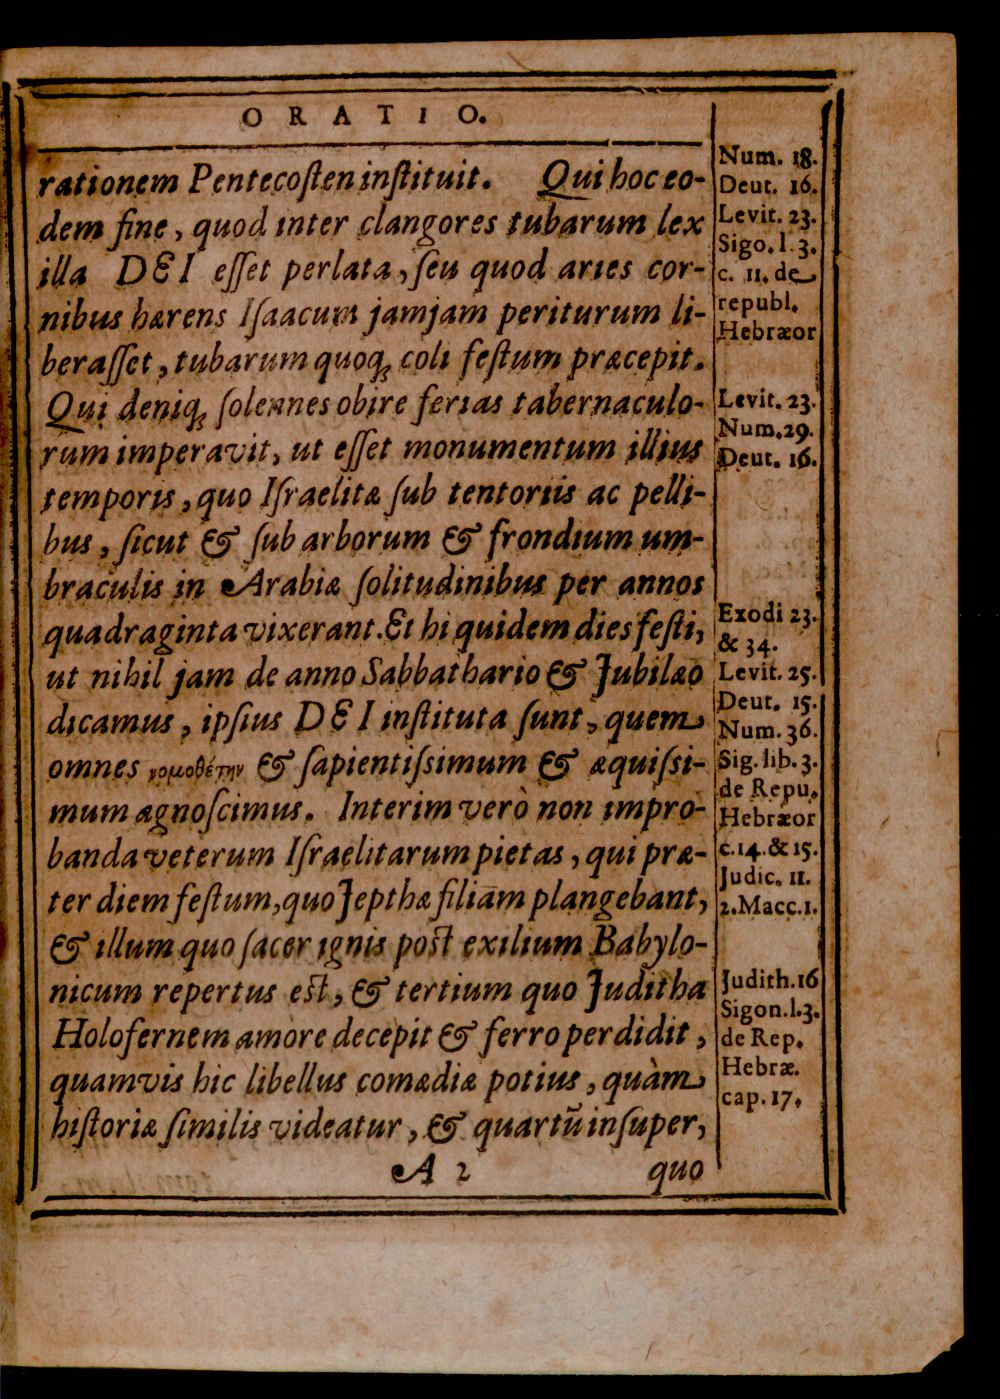 ORATIO.
rationem Pentecoſten inſtituit. Qui hoc eo-
dem fine, quod inter clangores tubarum lex
illa DEI eſſet perlata, ſeu quod aries cor-
nibus hærens Iſaacum jamjam periturum li-
beraſſet, tubarum quoq; coli feſtum præcepit.
Qui deniq; ſolennes obire ferias tabernaculo-
rum imperavit, ut eſſet monumentum illius
temporis, quo Iſraelitæ ſub tentoriis ac pelli-
bus, ſicut & ſub arborum & frondium um-
braculis in Arabiæ ſolitudinibus per annos
quadraginta vixerant. Et hi quidem dies feſti,
ut nihil jam de anno Sabbathario & Jubilæo
dicamus, ipſius DEI inſtituta ſunt, quem
omnes νομοθέτην & ſapientiſsimum & æquiſsi-
mum agnoſcimus. Interim verò non impro-
banda veterum Iſraelitarum pietas, qui præ-
ter diem feſtum, quo Jepthæ filiam plangebant,
& illum quo ſacer ignis poſt exilium Babylo-
nicum repertus eſt, & tertium quo Juditha
Holofernem amore decepit & ferro perdidit,
quamvis hic libellus comædiæ potius, quàm
hiſtoriæ ſimilis videatur, & quartũ inſuper,
A 2 quo
Num. 18.
Deut. 16.
Levit. 23.
Sigo. l. 3.
c. 11. de
republ.
Hebræor
Levit. 23.
Num. 29.
Deut. 16.
Exodi 23.
& 34.
Levit. 25.
Deut. 15.
Num. 36.
Sig. lib. 3.
de Repu.
Hebræor
c. 14. & 15.
Judic. 11.
2. Macc. 1.
Judith. 16
Sigon. l. 3.
de Rep.
Hebræ.
cap. 17.